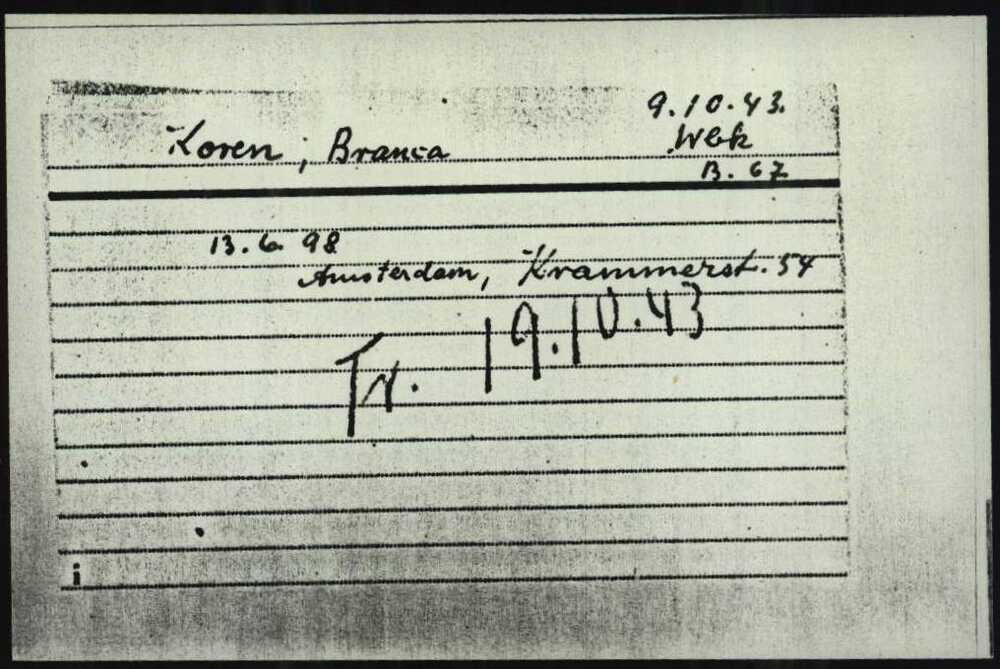 9.10.43.
Koren, Branca
Wbk
B. 67
13.6 98
Amsterdam, Krammerst. 54
Tr. 19.10.43
i